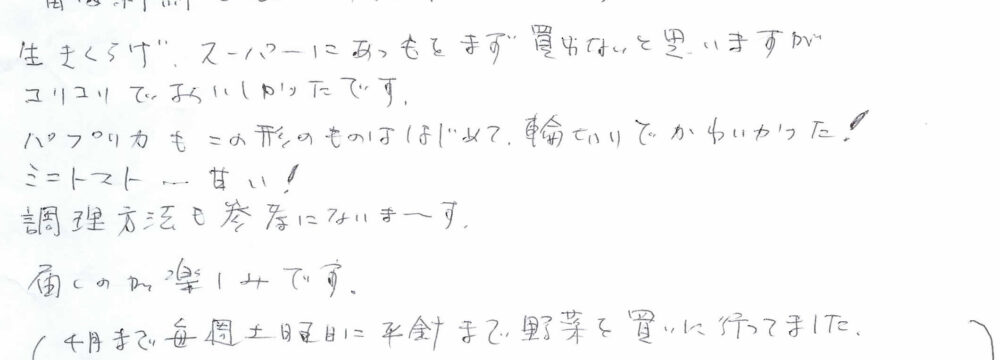 生きくらげ、スーパーにあってもまず買わないと思いますが
コリコリでおいしかったです。
パプリカもこの形のものははじめて、輪切りでかわいかった！
ミニトマト 甘い！
調理方法も参考になりまーす。
届くのが楽しみです。
(4月まで毎週土曜日に平針まで野菜を買いに行ってました。)